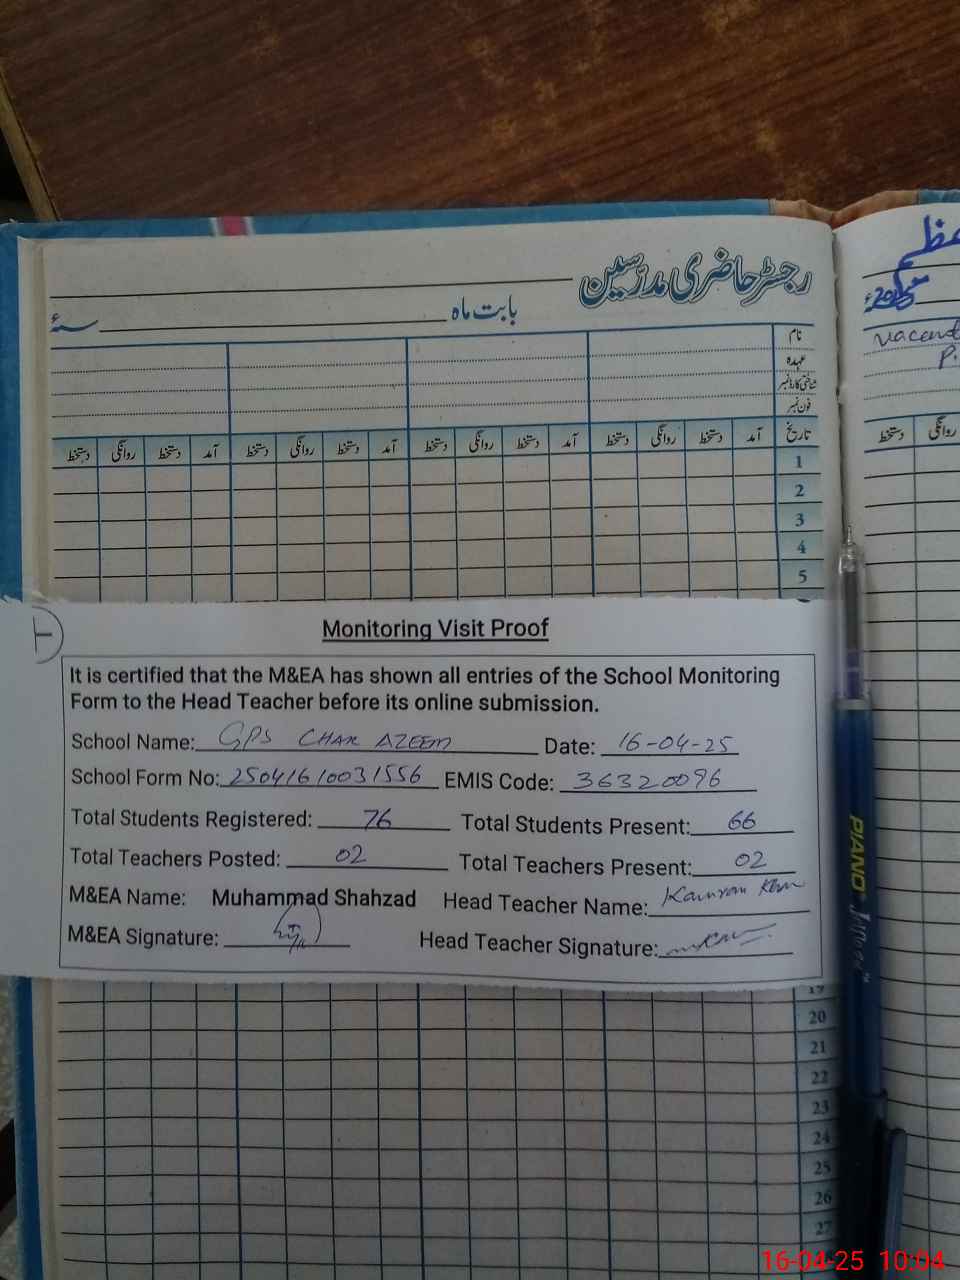 رجسٹر حاضری مدرسین
بابت ماہ ــــــ سنہء
نام
عہدہ
شناختی کارڈ نمبر
فون نمبر
تاریخ آمد دستخط روانگی دستخط آمد دستخط روانگی دستخط آمد دستخط روانگی دستخط آمد دستخط روانگی دستخط
1
2
3
4
5
Monitoring Visit Proof
It is certified that the M&EA has shown all entries of the School Monitoring
Form to the Head Teacher before its online submission.
School Name: GPS CHAK AZEEM Date: 16-04-25
School Form No: 25041610031556 EMIS Code: 36320096
Total Students Registered: 76 Total Students Present: 66
Total Teachers Posted: 02 Total Teachers Present: 02
M&EA Name: Muhammad Shahzad Head Teacher Name: Kamran
M&EA Signature: Head Teacher Signature:
19
20
21
22
23
24
25
26
27
عظیم
vacant
P.
روانگی دستخط
PIANO
16-04-25 10:04